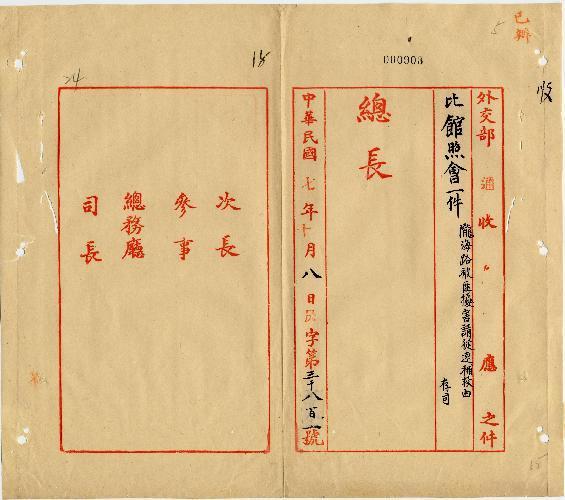 已辦
5
收
000903
外交部 通 收 應 之件
比館照會一件
隴海路被匪擾害請從速補救由
存司
總長
中華民國七年十月八日 字第三千八百一號
18
24
次長
參事
總務廳
司長
15